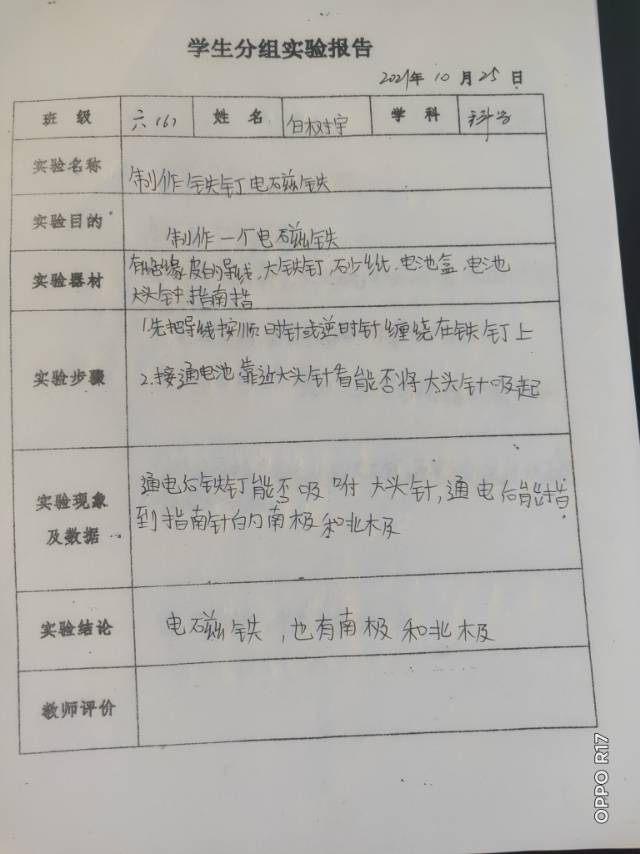 学生分组实验报告
2021年 10 月 25 日
班 级 六(6) 姓 名 白树宇 学 科 科学
实验名称 制作铁钉电磁铁
实验目的 制作一个电磁铁
实验器材 有绝缘皮的导线,大铁钉,砂纸,电池盒,电池
大头针 指南指
实验步骤
1.先把导线按顺时针或逆时针缠绕在铁钉上
2.接通电池靠近大头针看能否将大头针吸起
实验现象
及数据
通电后铁钉能否吸咐大头针,通电后能指
到指南针的南极和北极
实验结论 电磁铁,也有南极和北极
教师评价
OPPO R17